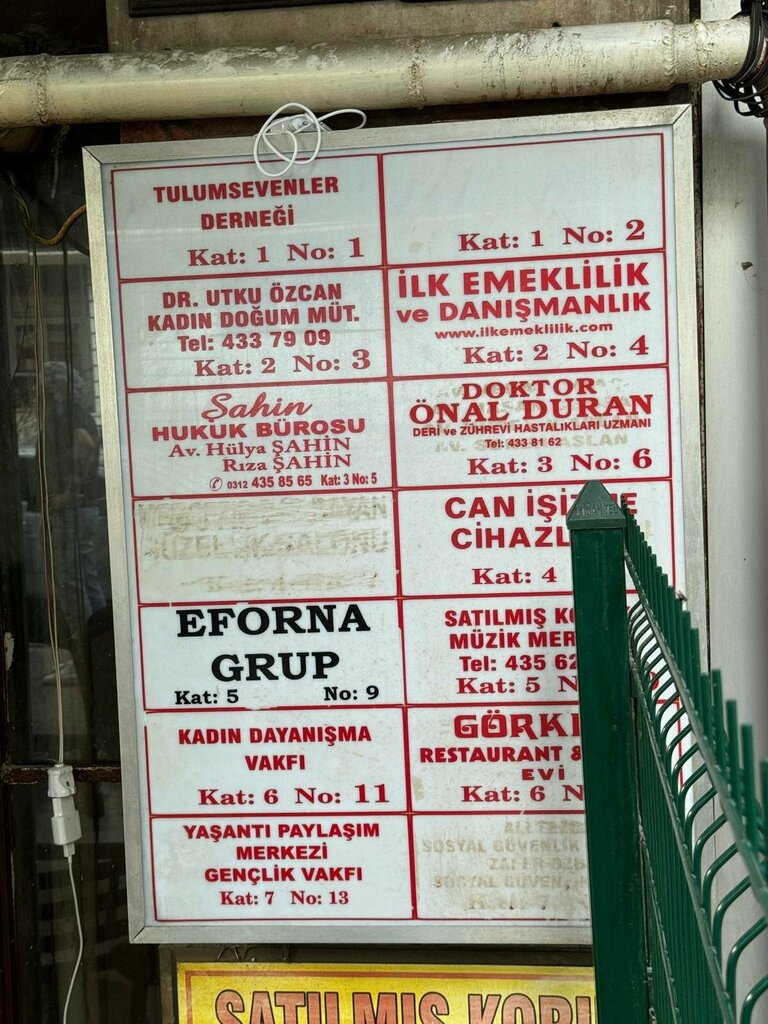 TULUMSEVENLER
DERNEĞİ
Kat: 1 No: 1
Kat: 1 No: 2
DR. UTKU ÖZCAN
KADIN DOĞUM MÜT.
Tel: 433 79 09
Kat: 2 No: 3
İLK EMEKLİLİK
ve DANIŞMANLIK
www.ilkemeklilik.com
Kat: 2 No: 4
Şahin
HUKUK BÜROSU
Av. Hülya ŞAHİN
Rıza ŞAHİN
0312 435 85 65 Kat: 3 No: 5
DOKTOR
ÖNAL DURAN
DERİ ve ZÜHREVİ HASTALIKLARI UZMANI
Tel: 433 81 62
Kat: 3 No: 6
CAN İŞİ
CİHAZL
Kat: 4
EFORNA
GRUP
Kat: 5 No: 9
SATILMIŞ
MÜZİK MER
Tel: 435 62
Kat: 5 N
KADIN DAYANIŞMA
VAKFI
Kat: 6 No: 11
GÖRK
RESTAURANT &
EVİ
Kat: 6 N
YAŞANTI PAYLAŞIM
MERKEZİ
GENÇLİK VAKFI
Kat: 7 No: 13
SOSYAL GÜVENLİK
SOSYAL GÜVEN
SATILMIŞ KORU